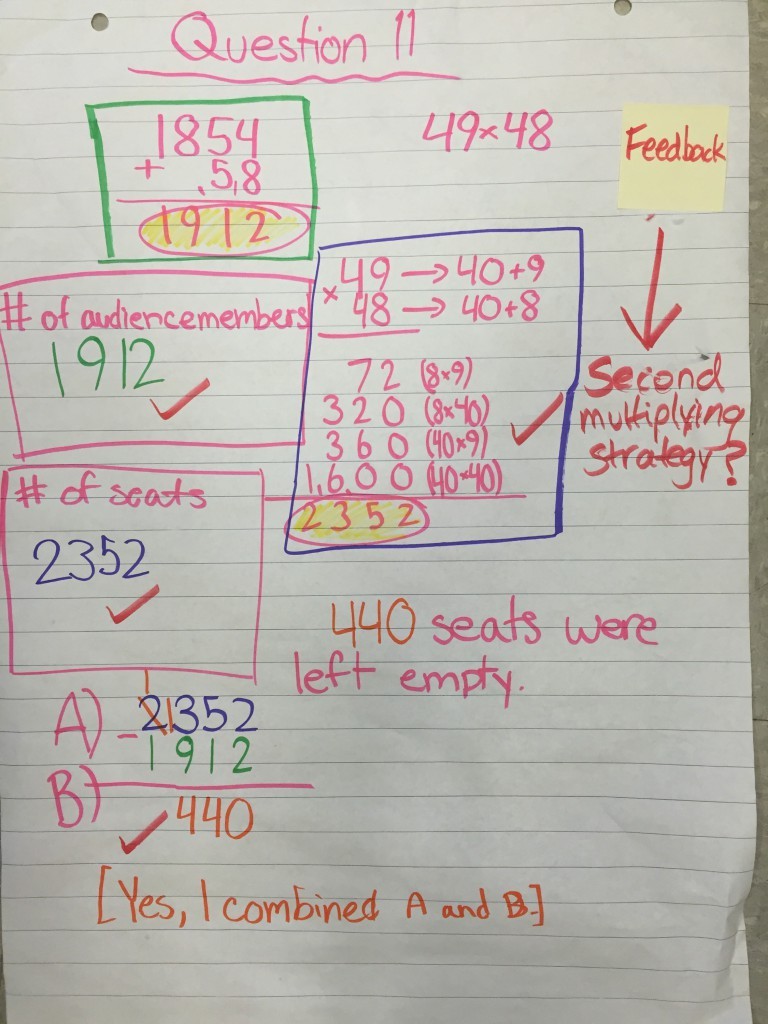 Question 11
1854
+ 58
1912
49×48
Feedback
# of audience members
1912
49 → 40+9
× 48 → 40+8
72 (8×9)
320 (8×40)
360 (40×9)
1,600 (40×40)
2352
Second
multiplying
strategy?
# of seats
2352
440 seats were
left empty.
A) 2352
- 1912
B) 440
[Yes, I combined A and B.]